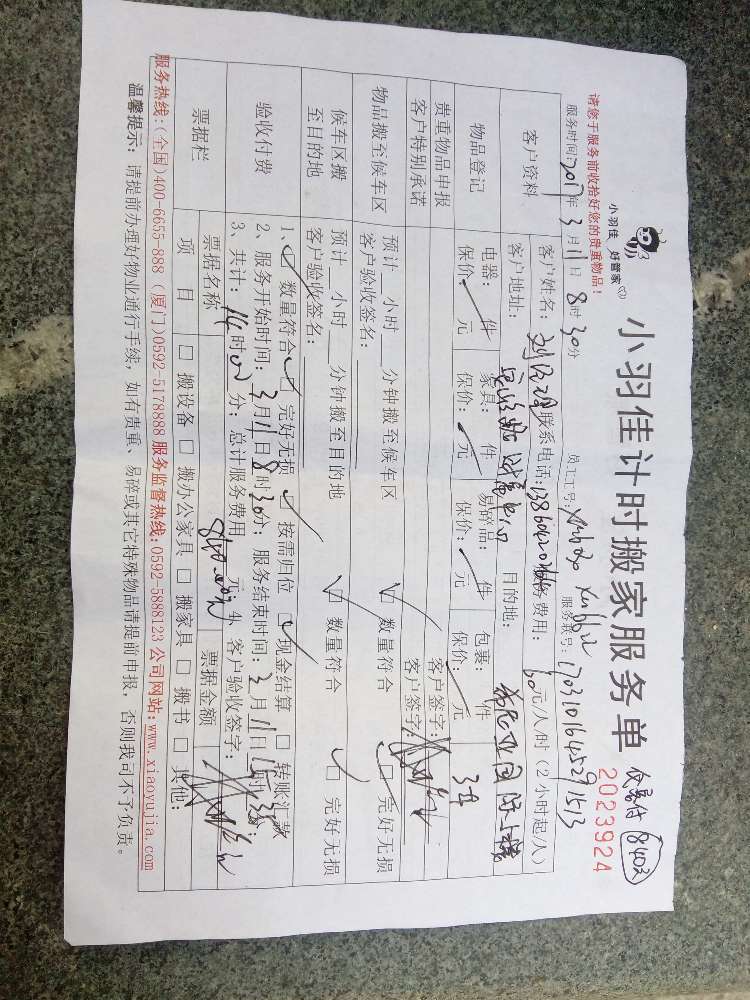 小羽佳 好管家
小羽佳计时搬家服务单
8403
2023924
请您于服务前收拾好您的贵重物品！
服务时间：2017年3月11日8时30分 员工工号： 服务账号：1703101645291513
客户资料 客户姓名： 联系电话： 服务费用：60元/人/时（2小时起/人）
客户地址： 目的地：
物品登记 电器： 件 家具： 件 易碎品： 件 包裹： 件
保价： 元 保价： 元 保价： 元 保价： 元
贵重物品申报 客户签字：
客户特别承诺 客户签字：
物品搬至候车区 预计 小时 分钟搬至候车区 □ 数量符合 □ 完好无损
客户验收签名：
候车区搬至目的地 预计 小时 分钟搬至目的地 □ 数量符合 □ 完好无损
客户验收签名：
验收付费 1、□ 数量符合 □ 完好无损 □ 按需归位 □ 现金结算 □ 转账汇款
2、服务开始时间：3月11日8时30分；服务结束时间：3月11日
3、共计：14时 分；总计服务费用 元 4、客户验收签字：
票据栏 票据名称 票据金额
项目 □ 搬设备 □ 搬办公家具 □ 搬家具 □ 搬书 □ 其他：
服务热线：（全国）400-6655-888（厦门）0592-5178888 服务监督热线：0592-5888123 公司网站：www.xiaoyujia.com
温馨提示：请提前办理好物业通行手续，如有贵重、易碎或其它特殊物品请提前申报，否则我司不予负责。